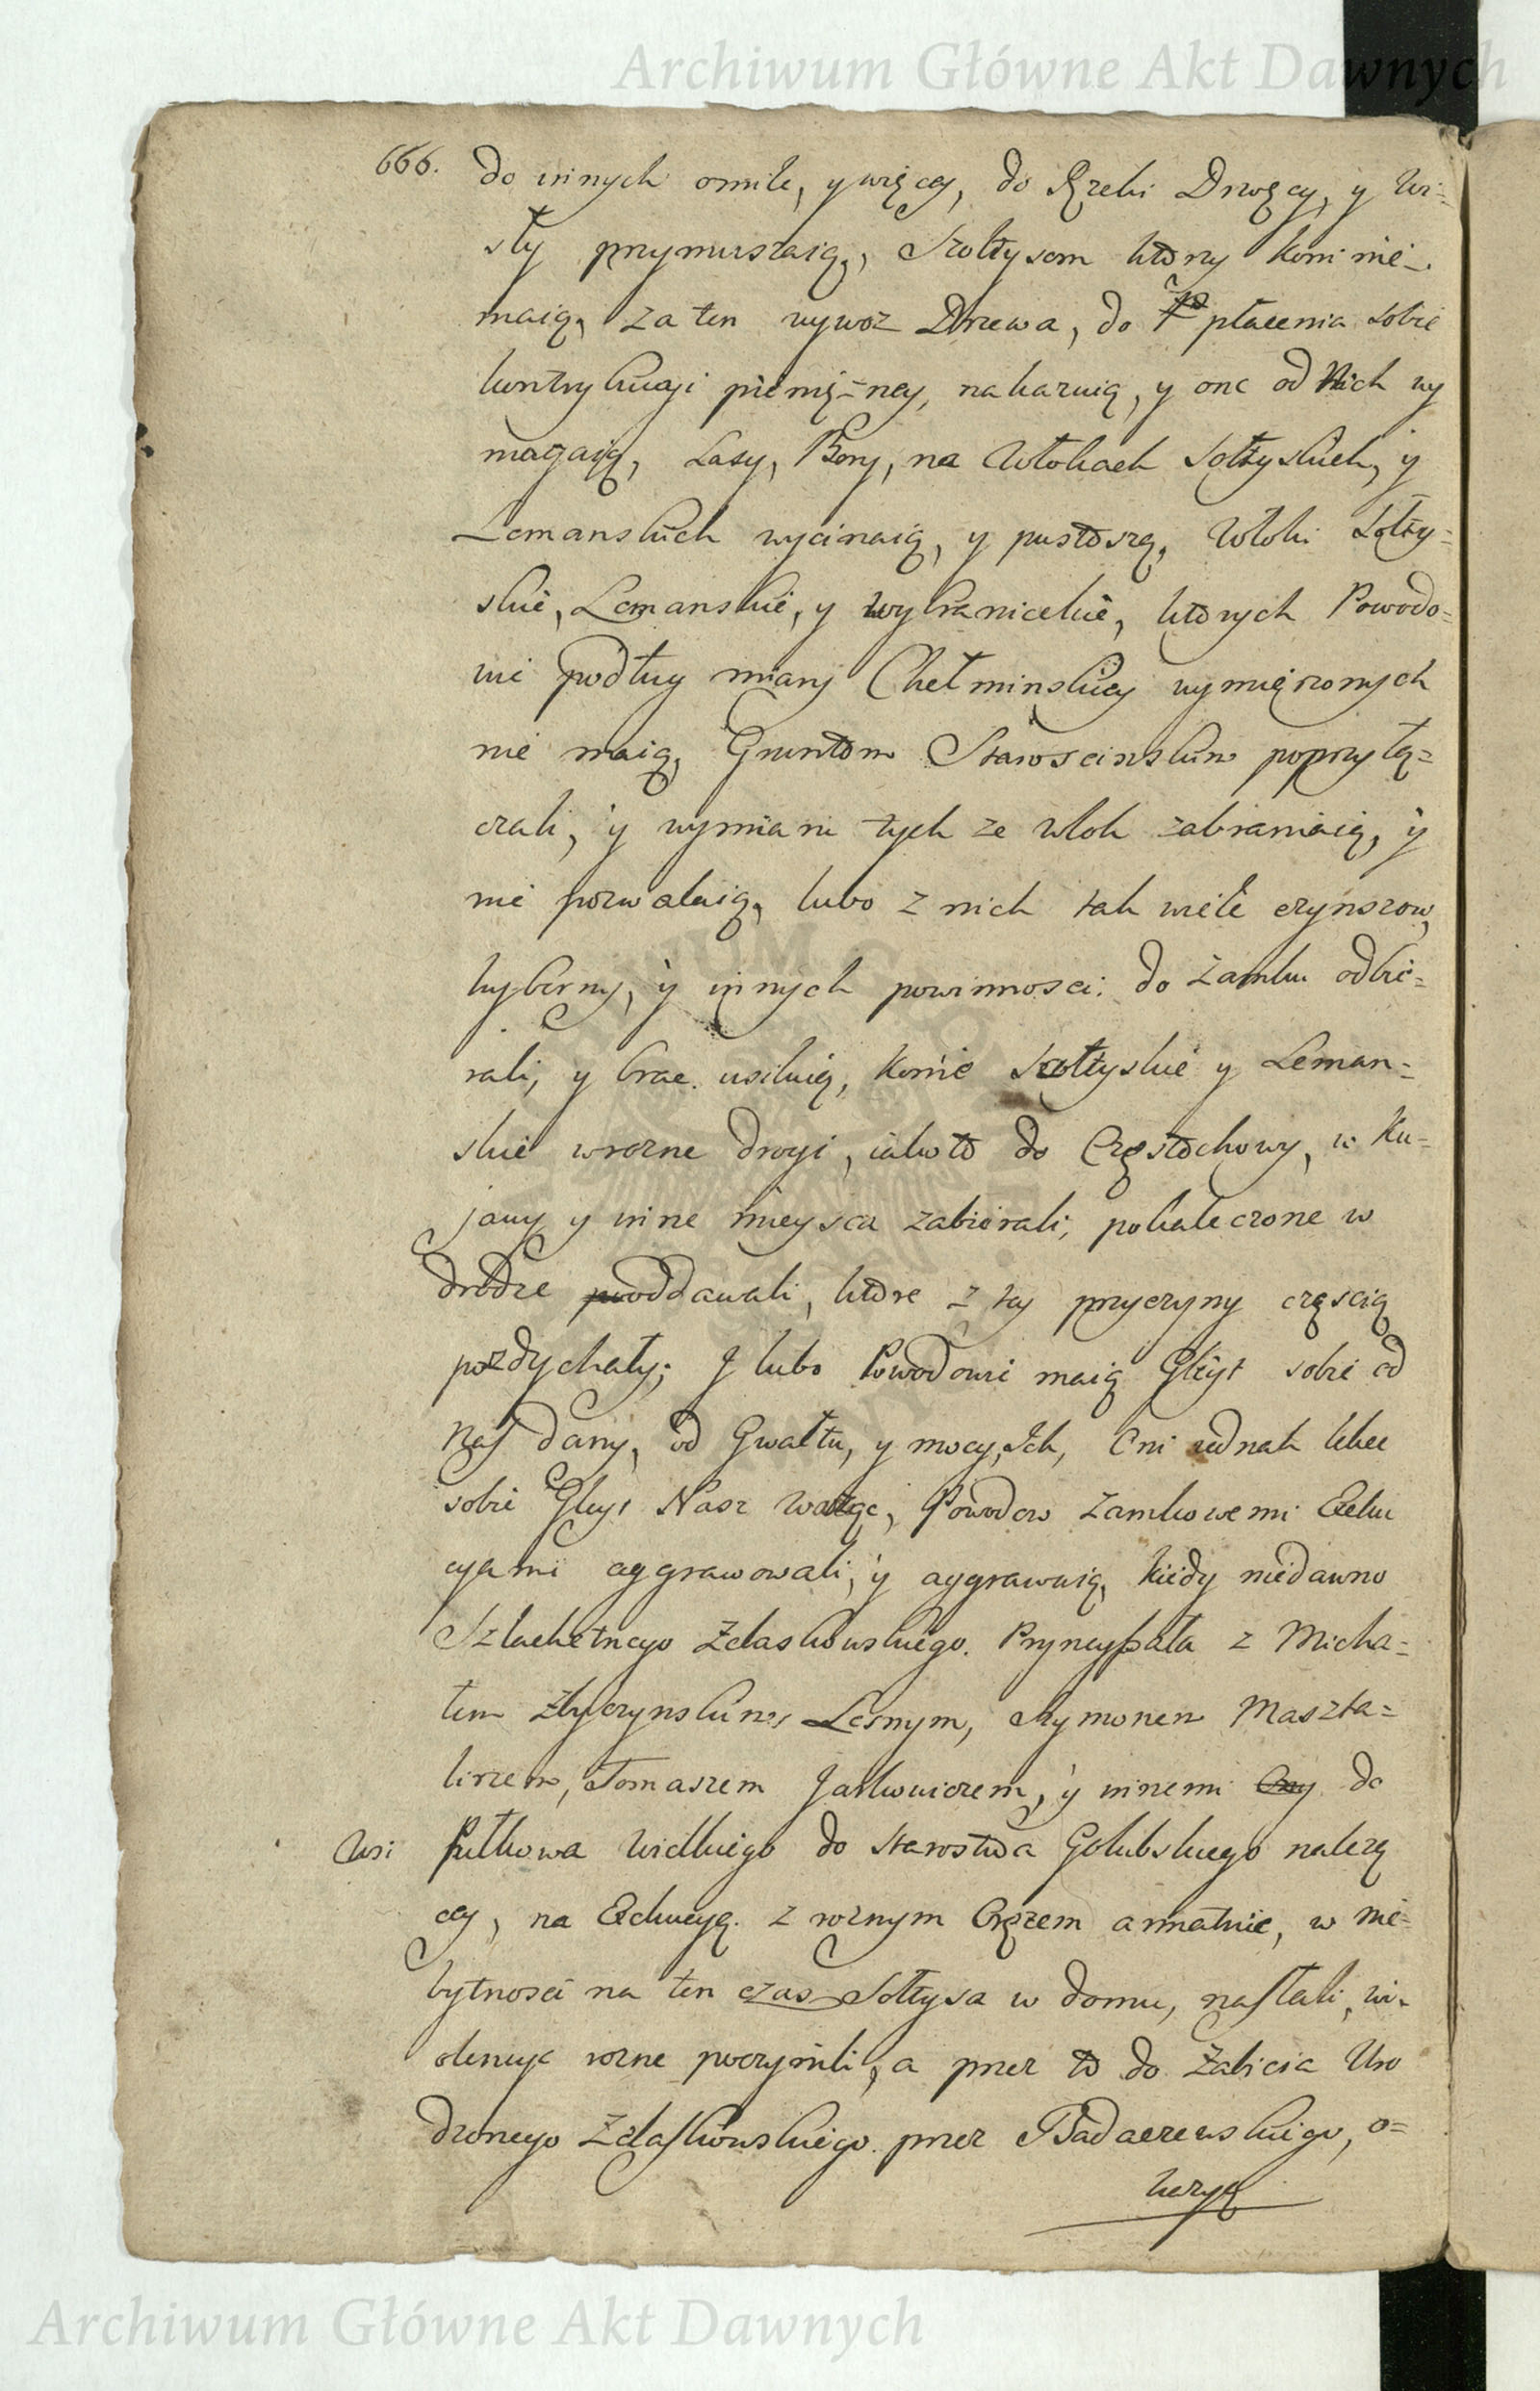 Archiwum Główne Akt Dawnych
666. do innych omile, y więcy, do Rzeki Drwęcy, y Wi=
sły przymuszaią, Szołtysom ktorzy koni nie=
maią, za ten wywoz Drzewa, do płacenia sobie
kontrybucyi pienię=żney, nakazuią, y one od Nich wy
magaią, Lasy, Bory, na Włokach Sołtyskich, y
Lemanskich wycinaią, y pustoszą, Włoki Sołty=
skie, Lemanskie, y wybranieckie, ktorych Powodo=
wie podług miary Chełminskiey wymierzonych
nie maią, Gruntom Staroscinskim poprzyłą=
czali, y wymiani tych ze włok zabraniaią, y
nie pozwalaią, lubo z nich tak wiele czynszow,
hyberny, y innych powinnosci do Zamku odbie=
rali, y brac usiłuią, konie Szołtyskie y Leman=
skie wrozne drogi, iakoto do Częstochowy, w Ku=
jawy y inne mieysca zabierali, pokaleczone w
drodze oddawali, ktore z tey przyczyny częscią
pozdychały; J lubo Powodowie maią Gleyt sobie od
Nas dany, od Gwałtu, y mocy, Ich, Oni iednak lekce
sobie Gleyt Nasz Ważąc, Powodow Zamkowemi Exeku
cyami aggrawowali, y aggrawuią, kiedy niedawno
Szlachetnego Zdaskowskiego Pryncypała z Micha=
łem Zbyczynskim, Lesnym, Szymonem Maszta=
lirzem, Tomaszem Jaskowiczem, y innemi do
Wsi Pułkowa Wielkiego do Starostwa Golubskiego należą
cey, na Exekucyą z roznym Orężem armatnie, w nie=
bytnosci na ten czas Sołtysa w domu, nasłali, wi=
olencye rozne poczynili, a przez to do Zabicia Uro
dzonego Zdaskowskiego przez Badaczewskiego, o=
kazyą
Archiwum Główne Akt Dawnych